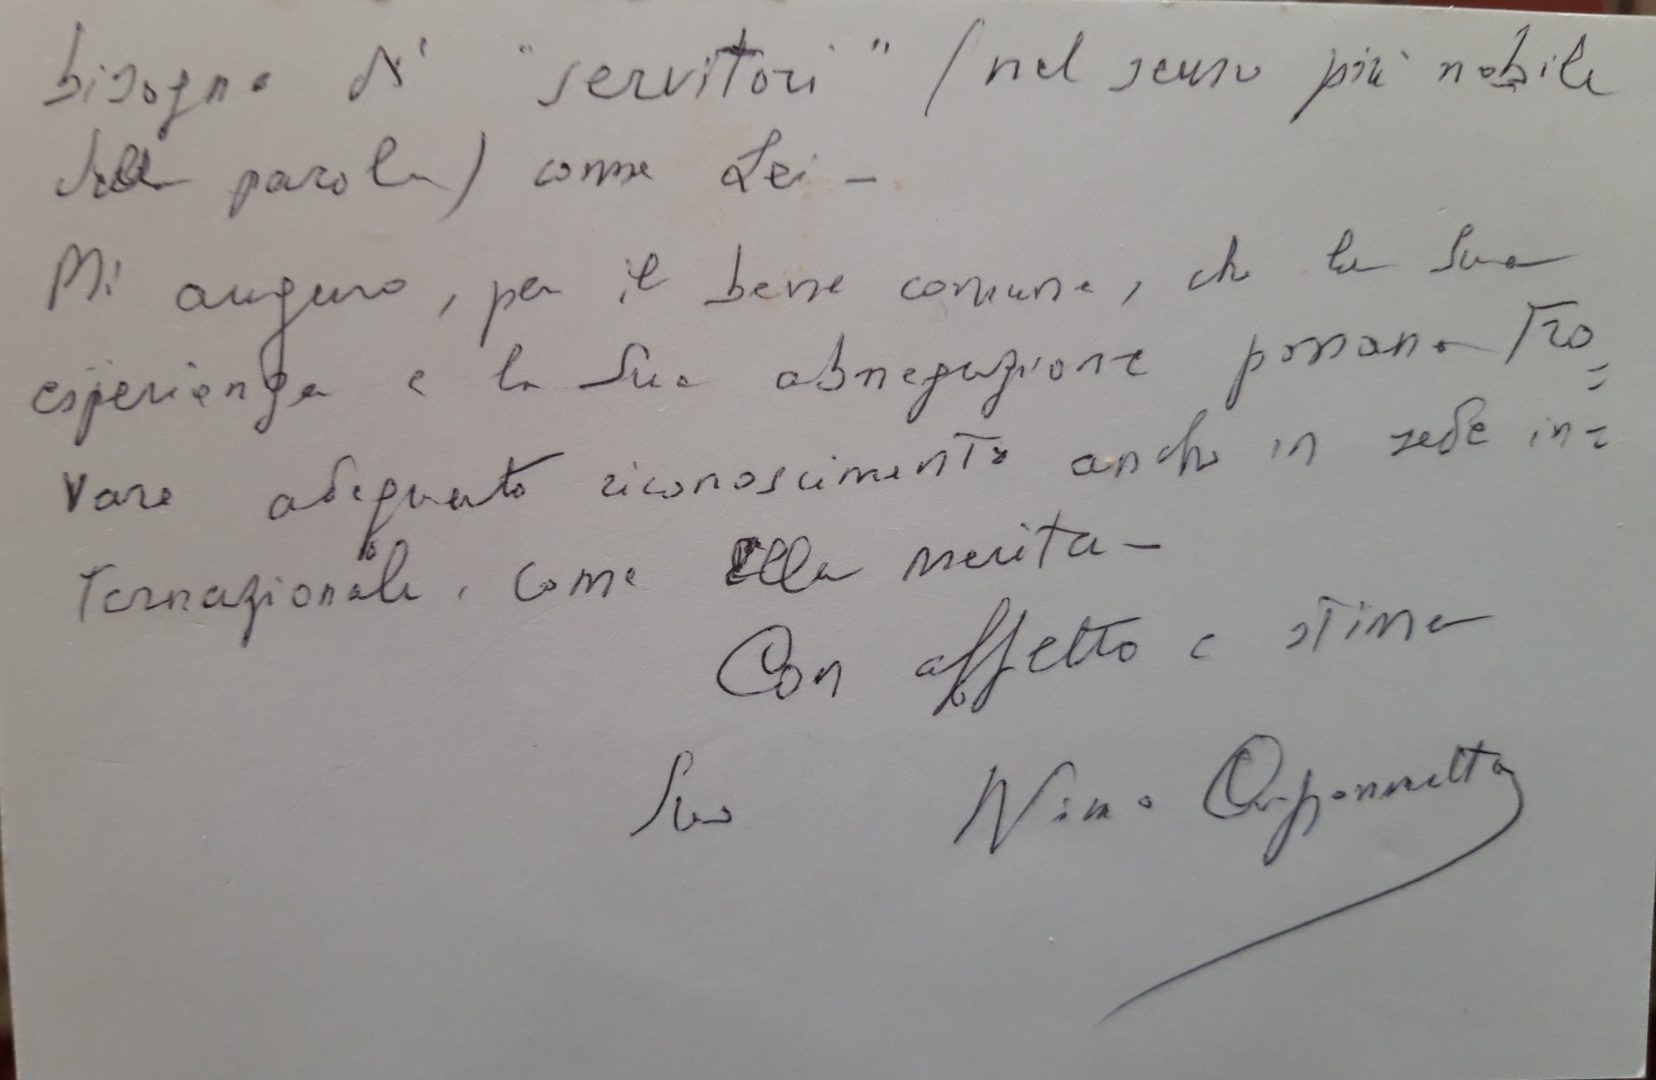 bisogno di "servitori" (nel senso più nobile
della parola) come Lei -
Mi auguro, per il bene comune, che la Sua
esperienza e la Sua abnegazione possano tro=
vare adeguato riconoscimento anche in sede in=
ternazionale, come Ella merita -
Con affetto e stima
Suo Nino Caponnetto